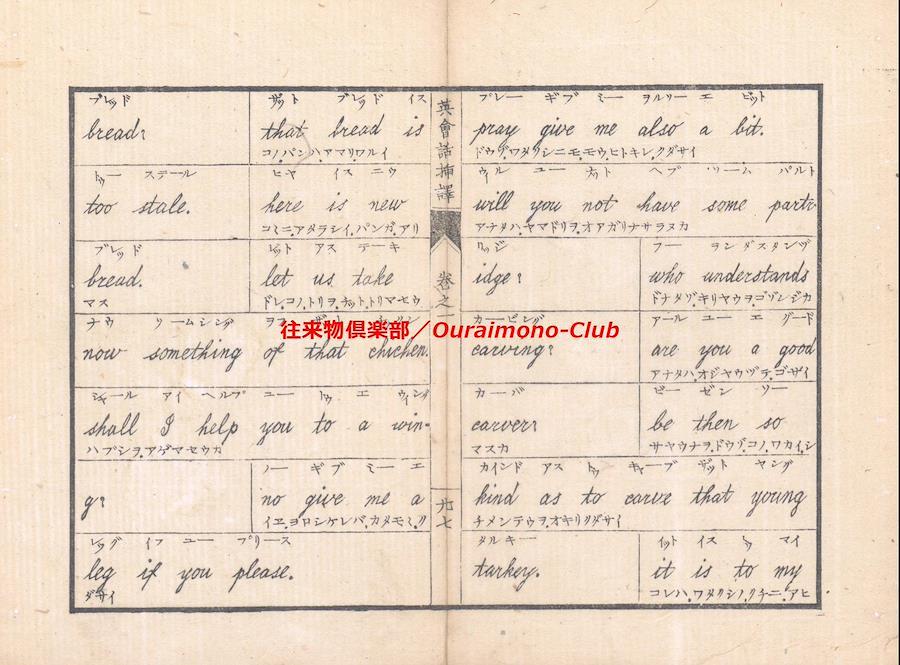 ブレッド ザット ブレッド イス
bread? that bread is
コノ.パンハ.アマリ.ワルイ
トゥー ステール ヒヤ イス ニウ
too stale. here is new
コヽニ.アタラシイ.パンガ.アリ
ブレッド レット アス テーキ
bread. let us take
マス ドレ.コノ.トリヲ.チット.トリマセウ
ナウ
now something of that chicken.
シャール アイ ヘルプ ユー トゥ エ ウィング
shall I help you to a win-
ハブシヲ.アゲマセウカ
ノー ギブ ミー エ
g? no give me a
イヱ.ヨロシケレバ.カタモヽ.ク
レッグ イフ ユー プリース
leg if you please.
ダサイ
英會話挿譯
卷之一
九七
プレー ギブ ミー ヲルソー エ ビット
pray give me also a bit.
ドウゾ.ワタクシニモ.モウ.ヒトキレ.クダサイ
ウィル ユー ナット ヘブ ソーム パルト
will you not have some partr
アナタハ.ヤマドリヲ.オアガリナサラヌカ
リッジ フー ヲンダスタンヅ
idge? who understands
ドナタゾ.キリヤウヲ.ゴゾンジカ
カービング アール ユー エ グード
carving? are you a good
アナタハ.オジヤウヅデ.ゴザイ
カーバ ビー ゼン ソー
carver? be then so
マスカ サヤウナヲ.ドウゾ.コノ.ワカイ.シ
カインド アス トゥ キャーブ ザット ヤング
kind as to carve that young
チメンテウヲ.オキリクダサイ
タルキー イット イス トゥ マイ
turkey. it is to my
コレハ.ワタクシノ.クチニ.アヒ
往来物倶楽部／Ouraimono-Club